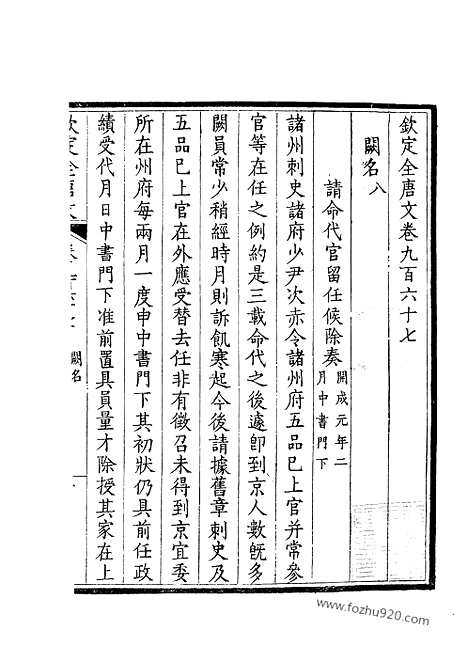 欽定全唐文卷九百六十七
闕名八
請命代官留任候除奏開成元年二
月中書門下
諸州刺史諸府少尹次赤令諸州府五品已上官并常參
官等在任之例約是三載命代之後遽卽到京人數旣多
闕員常少稍經時月則訴飢寒起今後請據舊章刺史及
五品已上官在外應受替去任非有徵召未得到京宜委
所在州府每兩月一度申中書門下其初狀仍具前任政
績受代月日中書門下准前置具員量才除授其家在上
欽定全唐文
闕名
www.fozhu920.com